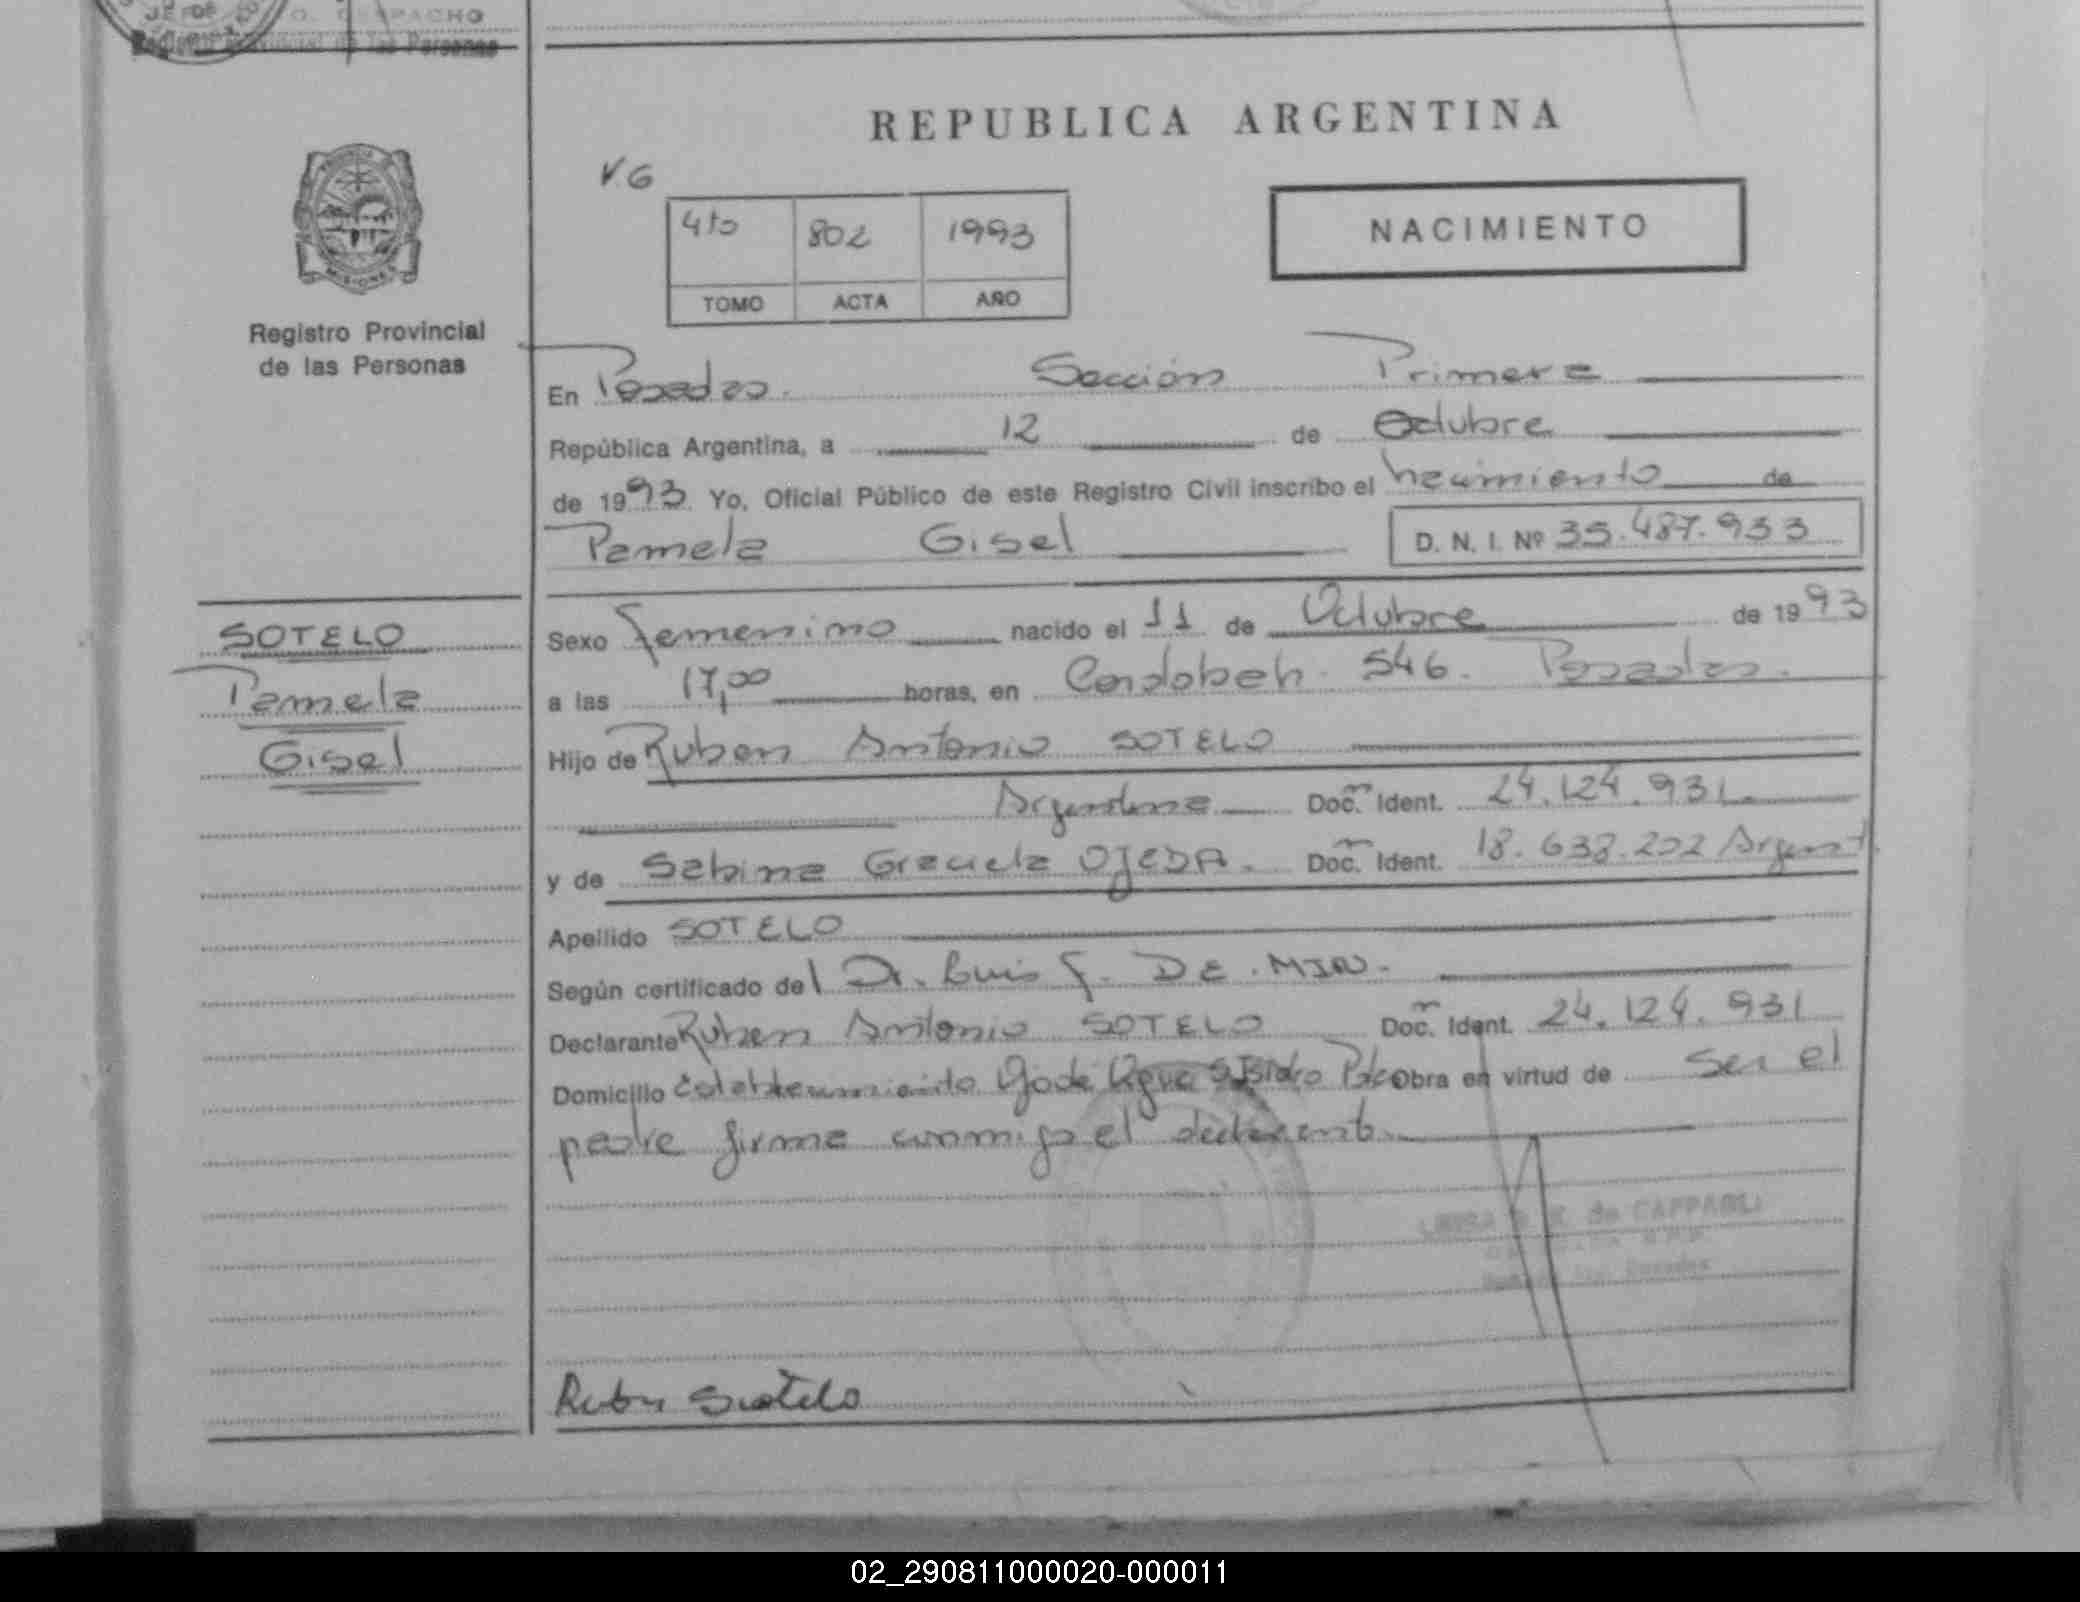 JEFE O. DESPACHO
Registro Provincial de las Personas
REPUBLICA ARGENTINA
V.G
4to 802 1993
TOMO ACTA AÑO
NACIMIENTO
PROVINCIA
MISIONES
Registro Provincial
de las Personas
En Posadas. Sección Primera
República Argentina, a 12 de Octubre
de 1993 Yo, Oficial Público de este Registro Civil inscribo el nacimiento de
Pamela Gisel D. N. I. Nº 35.487.933
SOTELO
Pamela
Gisel
Sexo femenino nacido el 11 de Octubre de 1993
a las 17,00 horas, en 546. Posadas.
Hijo de Ruben Antonio SOTELO
Argentina Doc. Ident. 24.124.931
y de Sabina Graciela OJEDA. Doc. Ident. 18.638.202 Argent
Apellido SOTELO
Según certificado del Dr. Luis F. DE. MIN.
Declarante Ruben Antonio SOTELO Doc. Ident. 24.124.931
Domicilio Establecimiento Isidro Obra en virtud de ser el
padre firma conmigo el declarante
de CAPPARLI
Ruben Sotelo
02_290811000020-000011